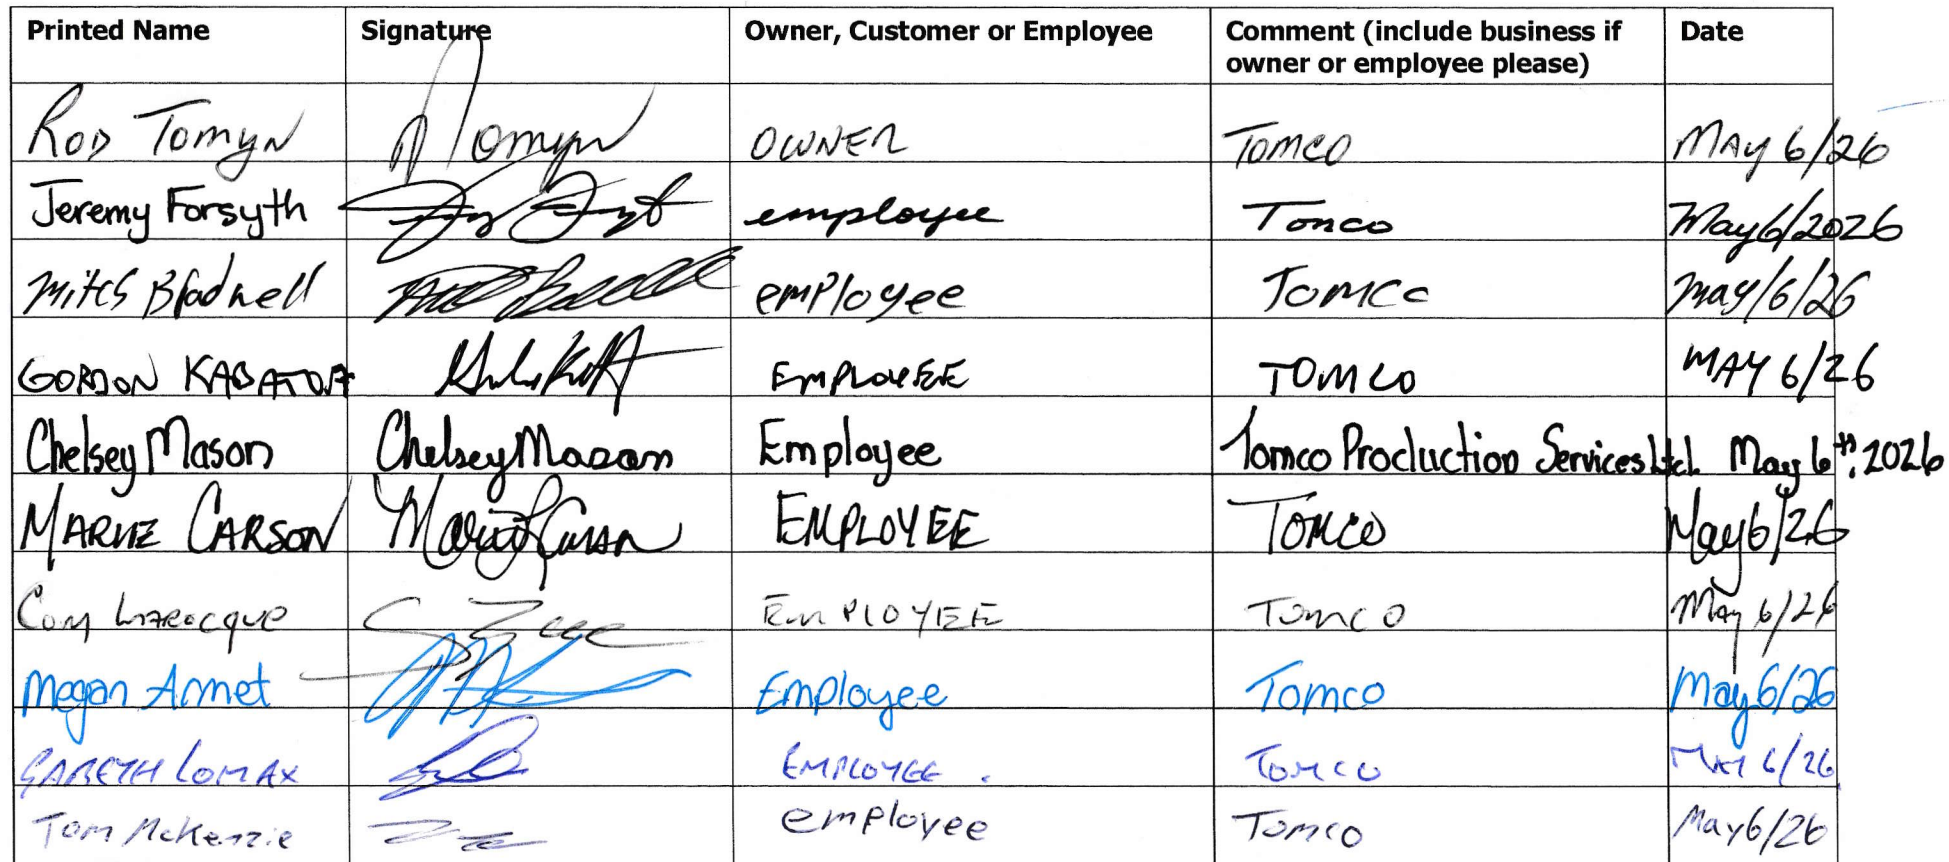 Printed Name Signature Owner, Customer or Employee Comment (include business if owner or employee please) Date
Rod Tomyn RTomyn OWNER Tomco May 6/26
Jeremy Forsyth employee Tomco May 6/2026
Mitch Bladwell employee TOMCO May/6/26
GORDON KABATOFF EMPLOYEE TOMCO MAY 6/26
Chelsey Mason Chelsey Mason Employee Tomco Production Services Ltd. May 6th, 2026
CARSON EMPLOYEE TOMCO May 6/26
Larocque EMPLOYEE Tomco May 6/26
Megan Employee Tomco May 6/26
GARETH LOMAX EMPLOYEE. TOMCO MAY 6/26
Tom McKenzie employee Tomco May 6/26